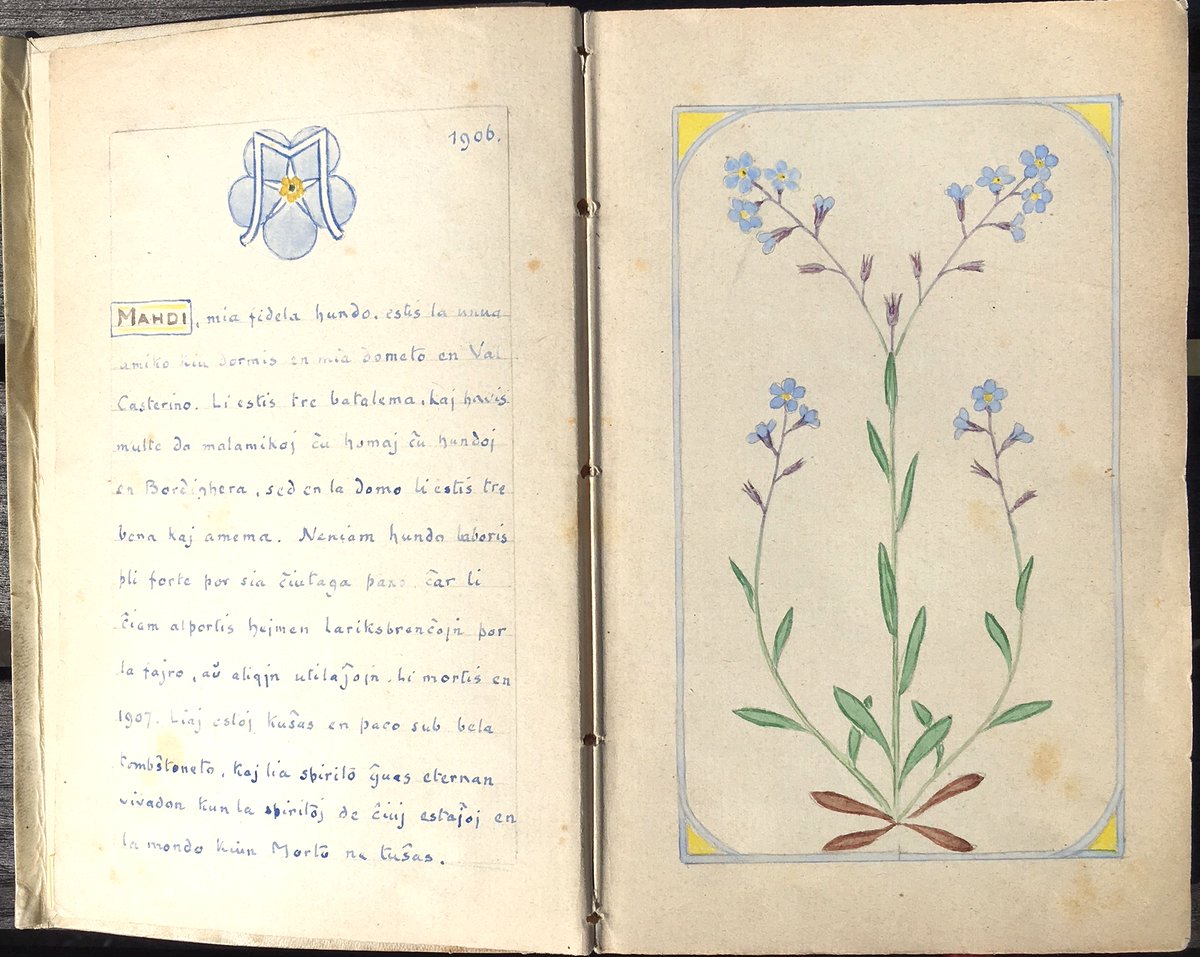 1906.
M
MAHDI, mia fidela hundo, estis la unua
amiko kiu dormis en mia dometo en Val
Casterino. Li estis tre batalema, kaj havis
multe da malamikoj ĉu homaj ĉu hundoj
en Bordighera, sed en la domo li estis tre
bona kaj amema. Neniam hundo laboris
pli forte por sia ĉiutaga pano ĉar li
ĉiam alportis hejmen Lariksbrenĉojn por
la fajro, aŭ aliajn utilaĵojn. Li mortis en
1907. Liaj ostoj kuŝas en paco sub bela
tombŝtoneto, kaj lia spirito ĝuas eternan
vivadon kun la spiritoj de ĉiuj estaĵoj en
la mondo kiun Morto ne tuŝas.